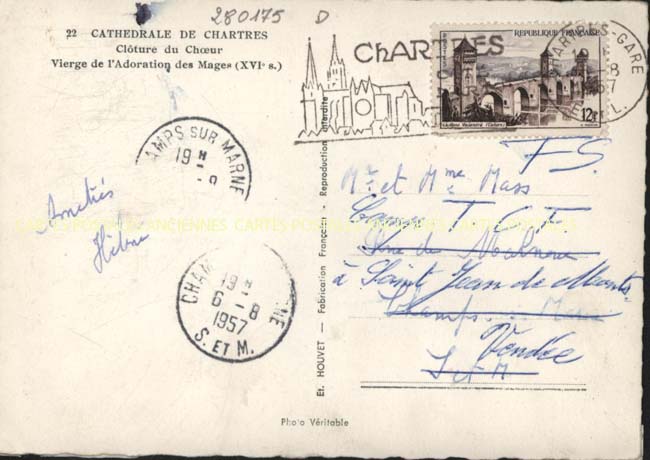 280175 D
22 CATHEDRALE DE CHARTRES
Clôture du Chœur
Vierge de l'Adoration des Mages (XVIᵉ s.)
ChARTRES
REPUBLIQUE FRANÇAISE
12F
CHARTRES-GARE
8
E.&L.
AMPS SUR MARNE
19 H
F.S.
Mr et Mme Mass
T C F
Rue de
à Saint Jean de Monts
Champs
Vendée
S et M
Amitiés
Hélène
CHAM
RNE
19 H
6 - 8
1957
S. ET M.
Et. HOUVET — Fabrication Française - Reproduction interdite
Photo Véritable
CARTES POSTALES ANCIENNES